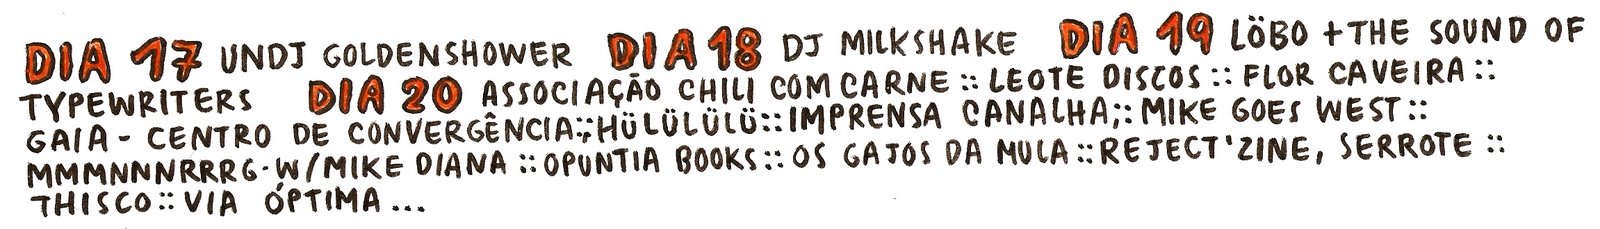 DIA 17 UNDJ GOLDENSHOWER DIA 18 DJ MILKSHAKE DIA 19 LÖBO + THE SOUND OF
TYPEWRITERS DIA 20 ASSOCIAÇÃO CHILI COM CARNE :: LEOTE DISCOS :: FLOR CAVEIRA ::
GAIA - CENTRO DE CONVERGÊNCIA :; HÜLÜLÜLÜ :: IMPRENSA CANALHA ;: MIKE GOES WEST ::
MMMNNNRRRG - W/MIKE DIANA :: OPUNTIA BOOKS :: OS GAJOS DA MULA :: REJECT'ZINE, SERROTE ::
THISCO :: VIA ÓPTIMA ...